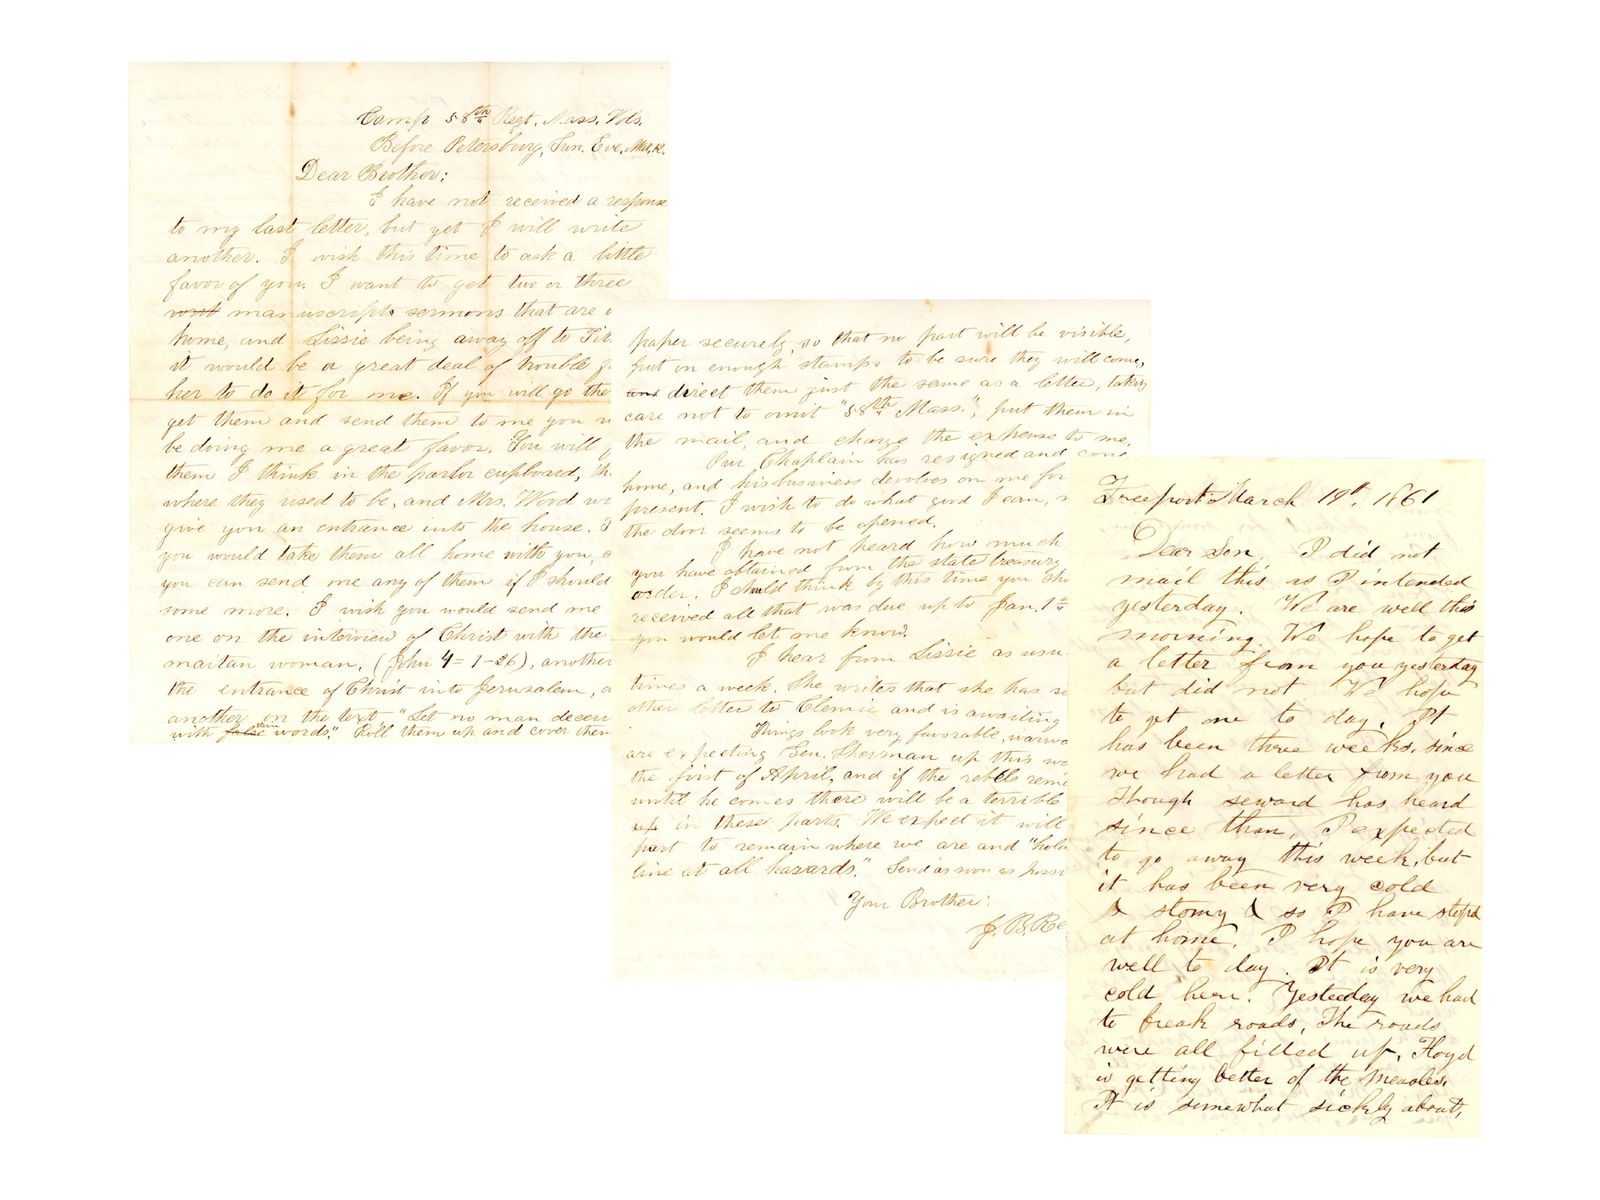 Camp 58th Regt. Mass. Vols.
Before Petersburg, Sun. Eve, Mar.
Dear Brother:
I have not received a response
to my last letter, but yet I will write
another. I wish this time to ask a little
favor of you. I want to get two or three
manuscript sermons that are
home, and Lissie being away off to
it would be a great deal of trouble
her to do it for me. If you will go
get them and send them to me you
be doing me a great favor. You will
them I think in the parlor cupboard,
where they used to be, and Mrs. Wood
give you an entrance into the house.
you would take them all home with you,
you can send me any of them if I should
some more. I wish you would send me
one on the interview of Christ with the
maitan woman, (John 4=1-26), another
the entrance of Christ into Jerusalem,
another on the text, "Let no man
with vain words." Roll them up and cover
paper securely so that no part will be visible,
put on enough stamps to be sure they will come,
and direct them just the same as a letter, taking
care not to omit "58th Mass.", put them in
the mail, and charge the expense to me,
Our Chaplain has resigned and
home, and his business devolves on me for
present. I wish to do what good I can,
the door seems to be opened.
I have not heard how much
you have obtained from the state treasury
order. I should think by this time you
received all that was due up to Jan. 1st
you would let me know.
I hear from Lissie as
times a week. She writes that she has
other letter to Clemie and is awaiting
Things look very favorable,
are expecting Gen. Sherman up this
the first of April, and if the rebels
until he comes there will be a terrible
up in these parts. We expect it will
part to remain where we are and
line at all hazards." Send as soon as
Your Brother:
J. B.
Freeport March 19th, 1861
Dear Son, I did not
mail this as I intended
yesterday. We are well this
morning. We hope to get
a letter from you yesterday
but did not We hope
to get one to day. It
has been three weeks, since
we had a letter from you
Though seward has heard
since than, I expected
to go away this week, but
it has been very cold
& stomy & so I have stopd
at home. I hope you are
well to day. It is very
cold here. Yesterday we had
to break roads, The roads
were all filled up, Floyd
is getting better of the Measles.
It is somewhat sickly about,